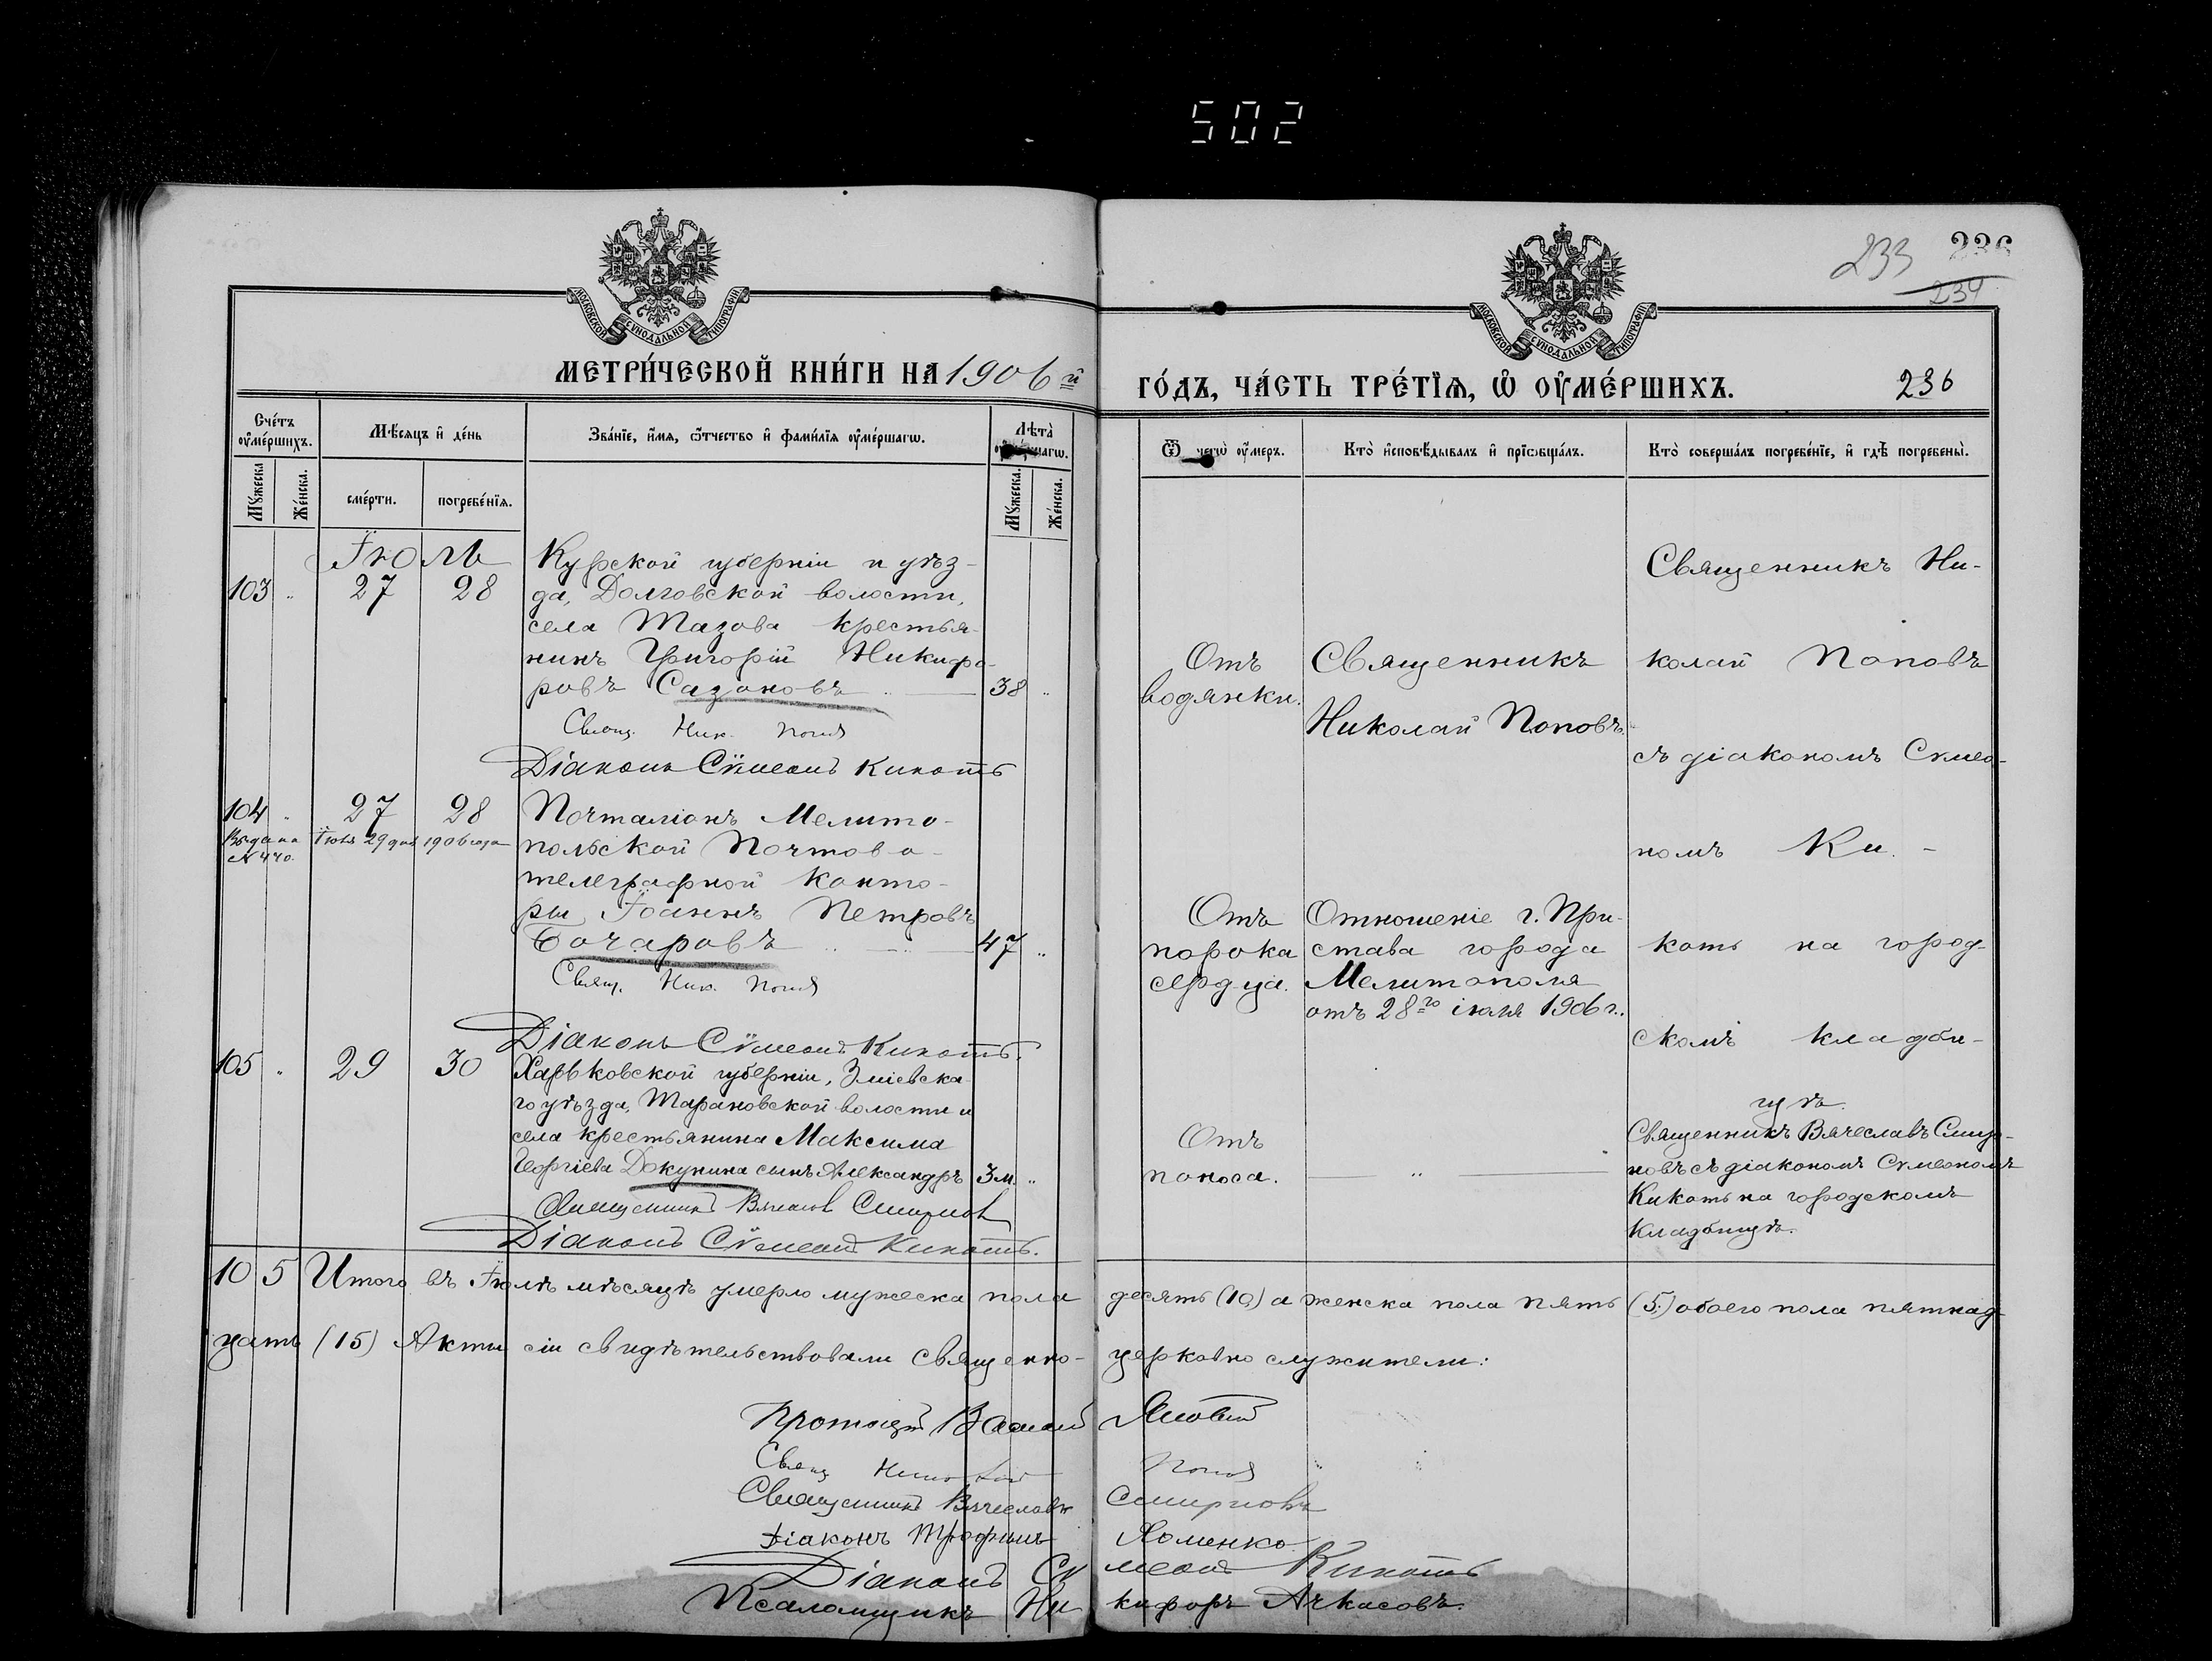 502
233 236
234
МОСКОВСКОЙ СѴНОДАЛЬНОЙ ТИПОГРАФІИ
МОСКОВСКОЙ СѴНОДАЛЬНОЙ ТИПОГРАФІИ
МЕТРИ́ЧЕСКОЙ КНИ́ГИ НА 1906й
ГО́ДЪ, ЧА́СТЬ ТРЕ́ТІѦ, Ѡ ОУМЕ́РШИХЪ. 236
Сче́тъ оуме́ршихъ.
Мѣ́сяцъ и де́нь
Зва́нїе, и́мя, ѻ҆́тчество и фами́лїя оуме́ршагѡ.
Лѣта̀
Мꙋ́жеска
Же́нска.
сме́рти.
погребе́нїя.
Мꙋ́жеска.
Же́нска.
Ѿ чегѡ̀ оу́меръ.
Кто̀ и҆сповѣ́дывалъ и҆ прїѡбща́лъ.
Кто̀ соверша́лъ погребе́нїе, и҆ гдѣ̀ погребены̀.
Іюль
103 " 27 28
Курской губерніи и уѣз-
да, Долговской волости,
села Тазова крестья-
нинъ Григорій Никифо-
ровъ Сазоновъ 38 "
Свящ. Ник. Попов
Діаконъ Сѵмеонъ Кикоть
Отъ
водянки.
Священникъ
Николай Поповъ
Священникъ Ни-
колай Поповъ
съ діакономъ Сѵмео-
номъ Ки-
коть на город-
скомъ кладби-
щѣ.
104 " 27 28
Выдана Іюля 29 дня 1906 года
№ 440.
Почталіонъ Мелито-
польской Почтово-
телеграфной Конто-
ры Іоаннъ Петровъ
Бочаровъ 47 "
Свящ. Ник. Попов
Діаконъ Сѵмеонъ Кикоть.
Отъ
порока
сердца.
Отношеніе г. При-
става города
Мелитополя
отъ 28го іюля 1906 г.
105 " 29 30
Харьковской губерніи, Зміевска-
го уѣзда, Тарановской волости и
села крестьянина Максима
Георгіева Докунина сынъ Александръ 3 м. "
Священникъ Вячеслав Смирнов
Діаконъ Сѵмеонъ Кикоть.
Отъ
поноса.
"
Священникъ Вячеславъ Смир-
новъ съ діакономъ Сѵмеономъ
Кикоть на городскомъ
кладбищѣ.
10 5 Итого въ Іюлѣ мѣсяцѣ умерло мужеска пола десять (10) а женска пола пять (5) обоего пола пятнад-
цать (15) Акты сіи свидѣтельствовали священно-церковно служители:
Свящ Николай Попов
Священникъ Вячеславъ Смирновъ
Діаконъ Трофимъ Хоменко
Діаконъ Сѵмеонъ Кикоть
Псаломщикъ Никифоръ Ачкасовъ.